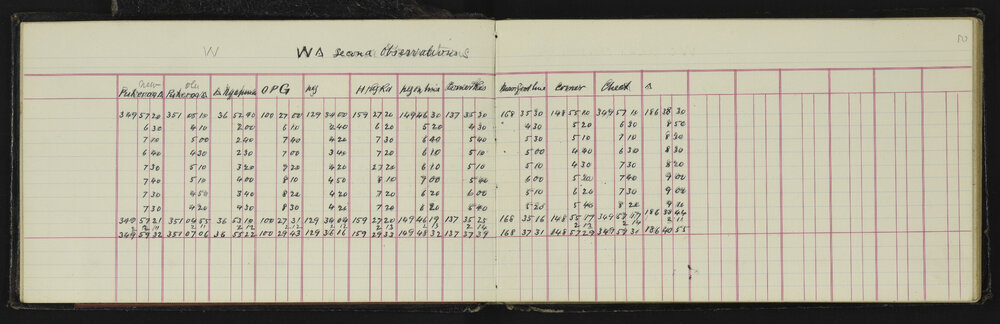 W W∆ second Observations
new old
Pukeroa ∆ Pukeroa ∆ ∆ Ngapuia O P G H corner Check ∆
349 57 20 351 05 10 36 52 40 100 27 00 129 34 00 159 27 20 149 46 30 137 35 30 168 35 30 148 55 10 349 57 10 186 38 30
6 30 4 10 2 00 6 10 2 40 6 20 5 20 4 30 4 30 5 20 6 30 8 50
7 10 5 00 2 40 7 40 4 20 7 30 6 40 5 40 5 30 5 10 7 10 8 30
6 40 4 30 2 30 7 00 3 40 7 20 6 10 5 10 5 00 4 40 6 30 8 30
7 30 5 10 3 20 9 20 4 20 27 20 6 10 5 10 5 10 4 30 7 30 8 20
7 40 5 10 4 00 8 10 4 50 8 10 9 00 5 40 6 00 5 20 7 40 9 00
7 30 4 50 3 40 8 20 4 20 7 20 6 20 6 00 5 10 6 20 7 30 9 00
7 30 4 20 4 30 8 30 4 20 7 20 6 20 5 40 5 20 5 40 8 20 9 10
349 57 21 351 04 55 36 53 10 100 27 31 129 34 04 159 27 20 149 46 19 137 35 25 168 35 16 148 55 17 349 57 17 186 38 44
2 11 2 11 2 12 2 12 2 12 2 13 2 13 2 14 2 13 2 14 2 11
349 59 32 351 07 06 36 55 22 100 29 43 129 36 16 159 29 33 149 48 32 137 37 39 168 37 31 148 57 29 349 59 31 186 40 55